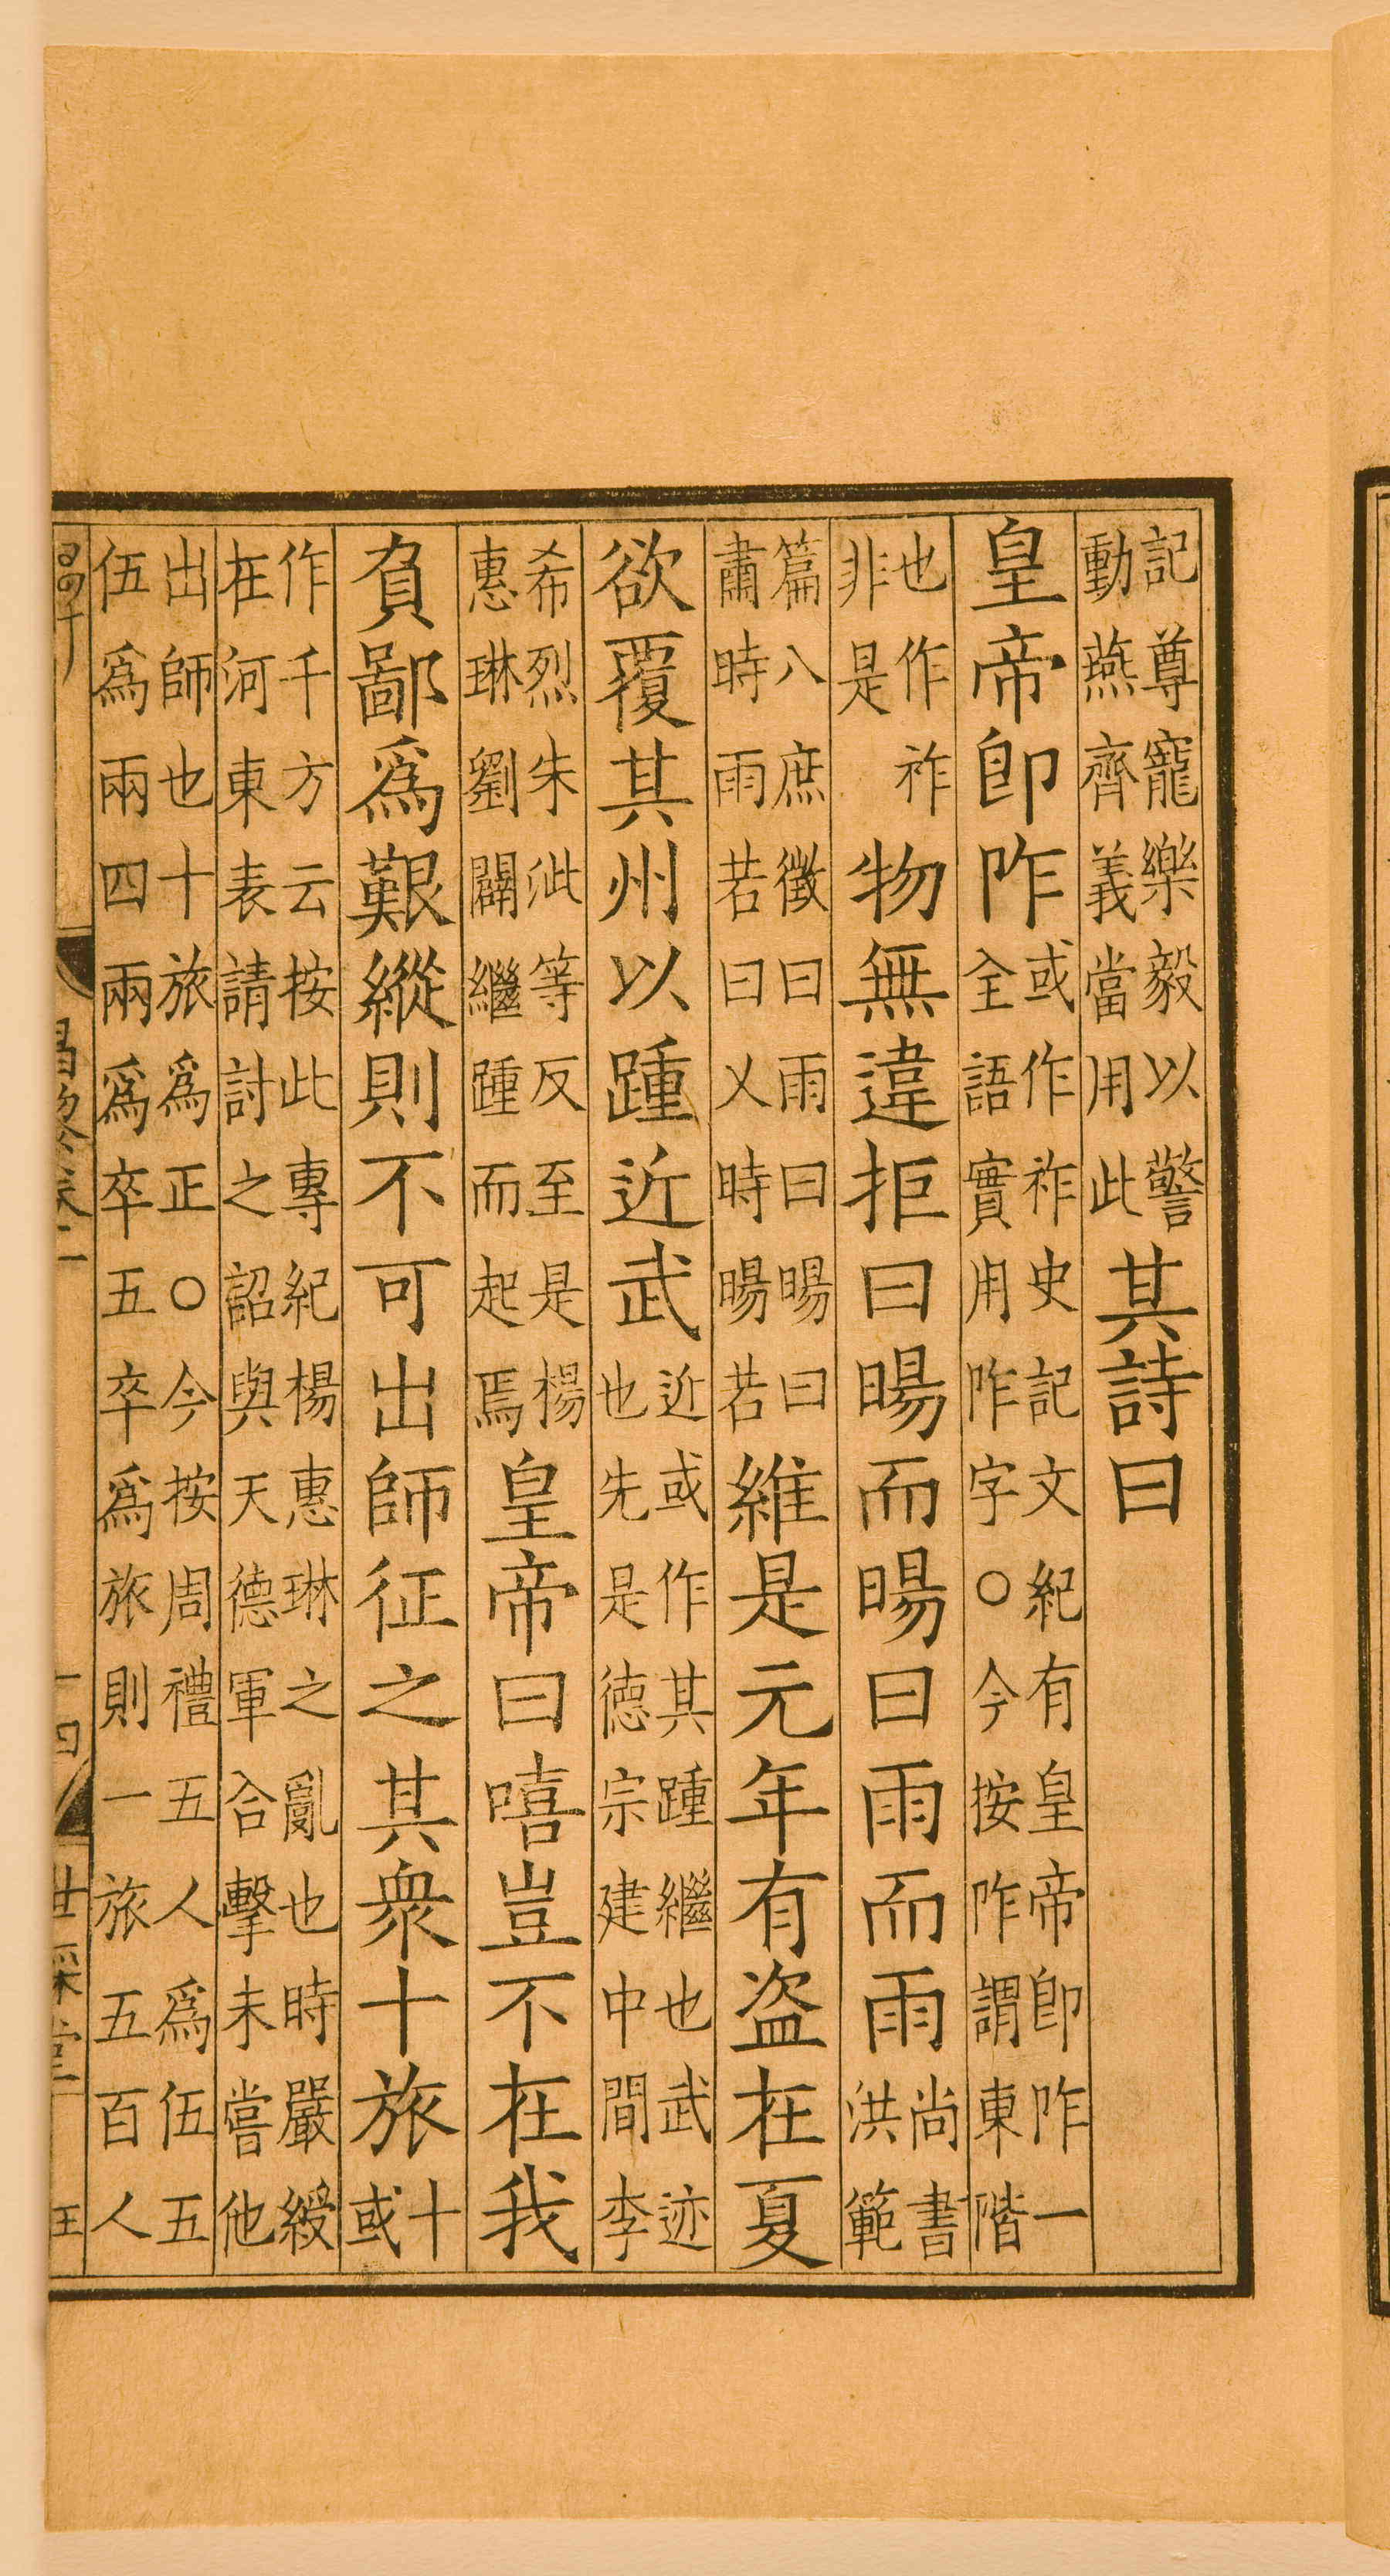 記尊寵樂毅以警
動燕齊義當用此其詩曰
皇帝卽阼或作祚史記文紀有皇帝卽阼一
全語實用阼字○今按阼謂東階
也作祚
非是物無違拒曰暘而暘曰雨而雨尚書
洪範
篇八庶徵曰雨曰暘曰
肅時雨若曰乂時暘若維是元年有盗在夏
欲覆其州以踵近武近或作其踵繼也武迹
也先是德宗建中間李
希烈朱泚等反至是楊
惠琳劉闢繼踵而起焉皇帝曰嘻豈不在我
負鄙爲艱縱則不可出師征之其衆十旅十
或
作千方云按此專紀楊惠琳之亂也時嚴綬
在河東表請討之詔與天德軍合擊未嘗他
出師也十旅爲正○今按周禮五人爲伍五
伍爲兩四兩爲卒五卒爲旅則一旅五百人
昌黎卷一 十四 世綵堂